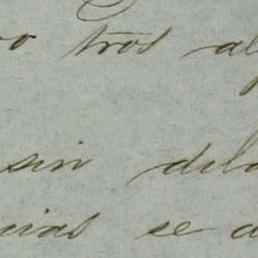 tros al
sin dila
cias se a